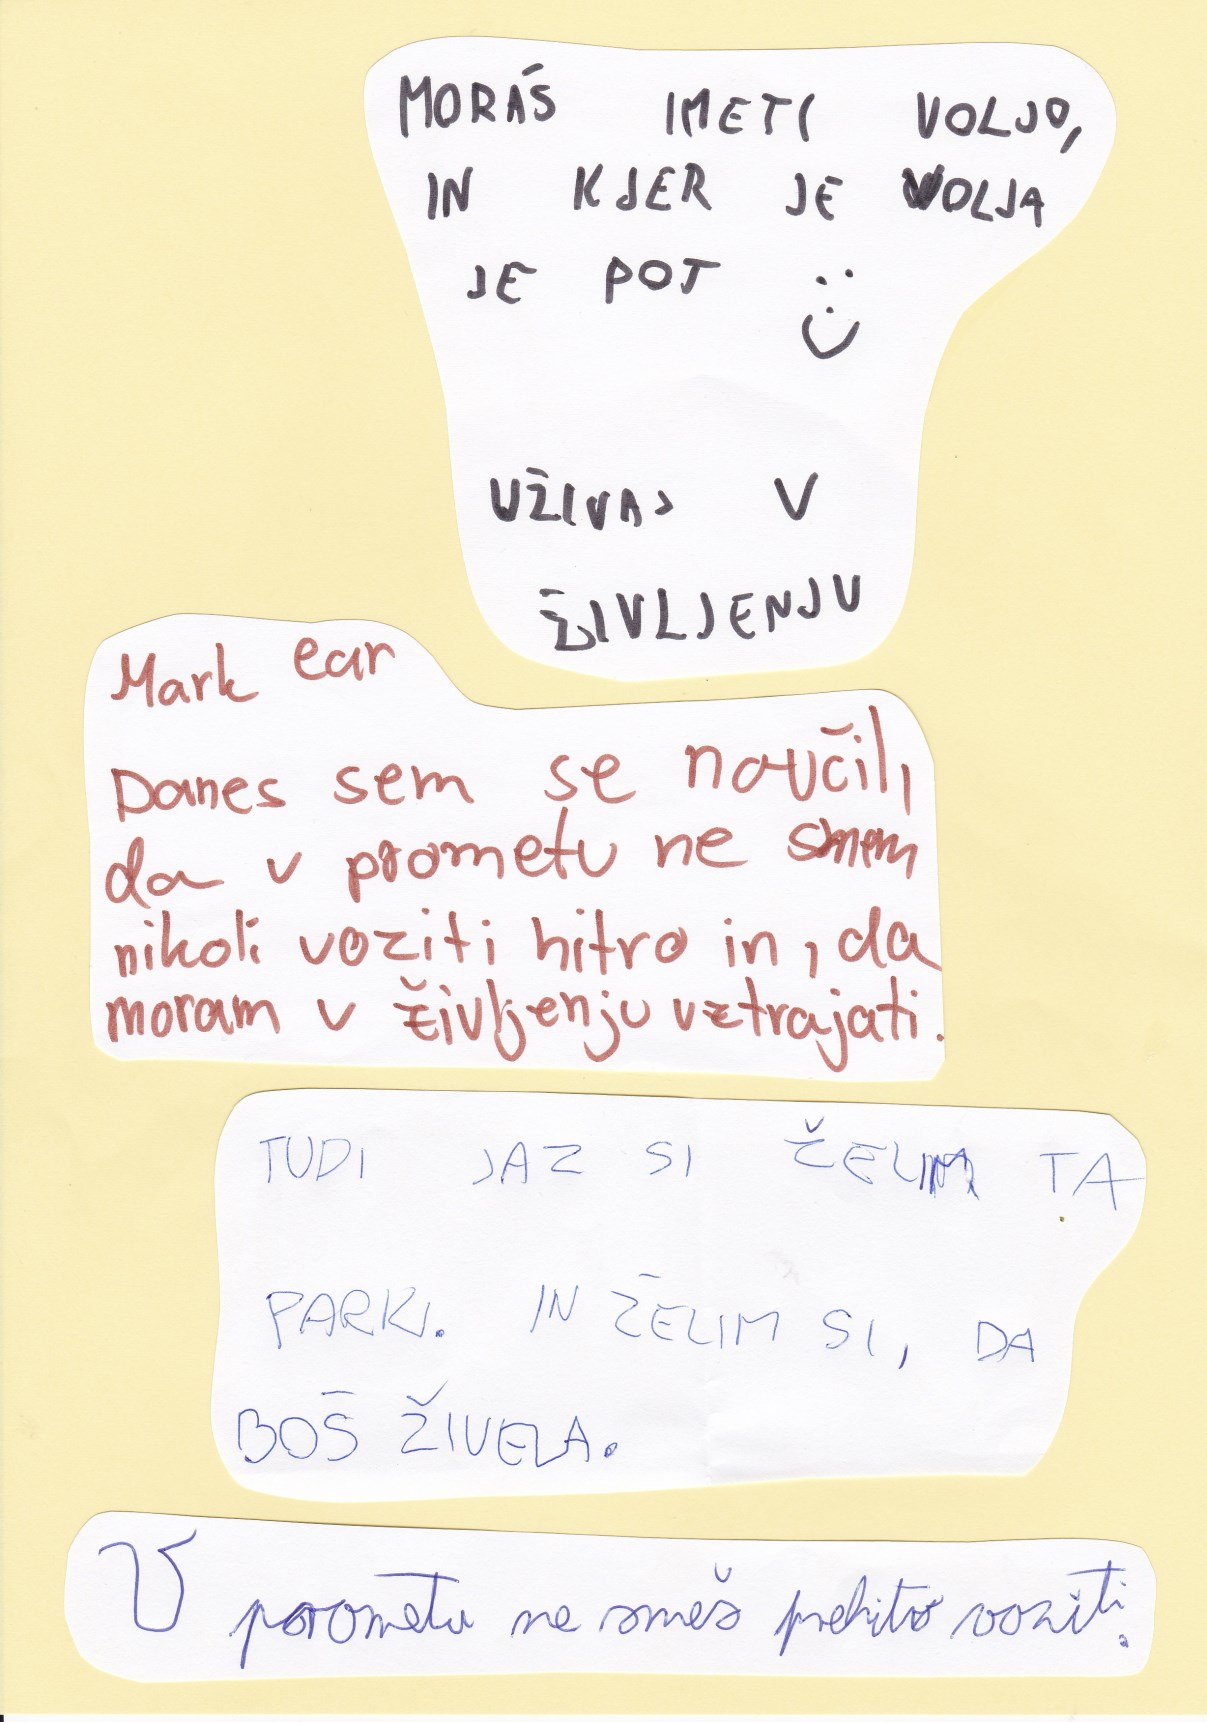 MORAŠ IMETI VOLJO,
IN KJER JE VOLJA
JE POT
UŽIVAJ V
ŽIVLJENJU
Mark ear
Danes sem se naučil,
da v prometu ne smem
nikoli voziti hitro in, da
moram v življenju vztrajati.
TUDI JAZ SI ŽELIM TA
PARKI. IN ŽELIM SI, DA
BOŠ ŽIVELA.
V prometu ne smeš prehitro voziti.